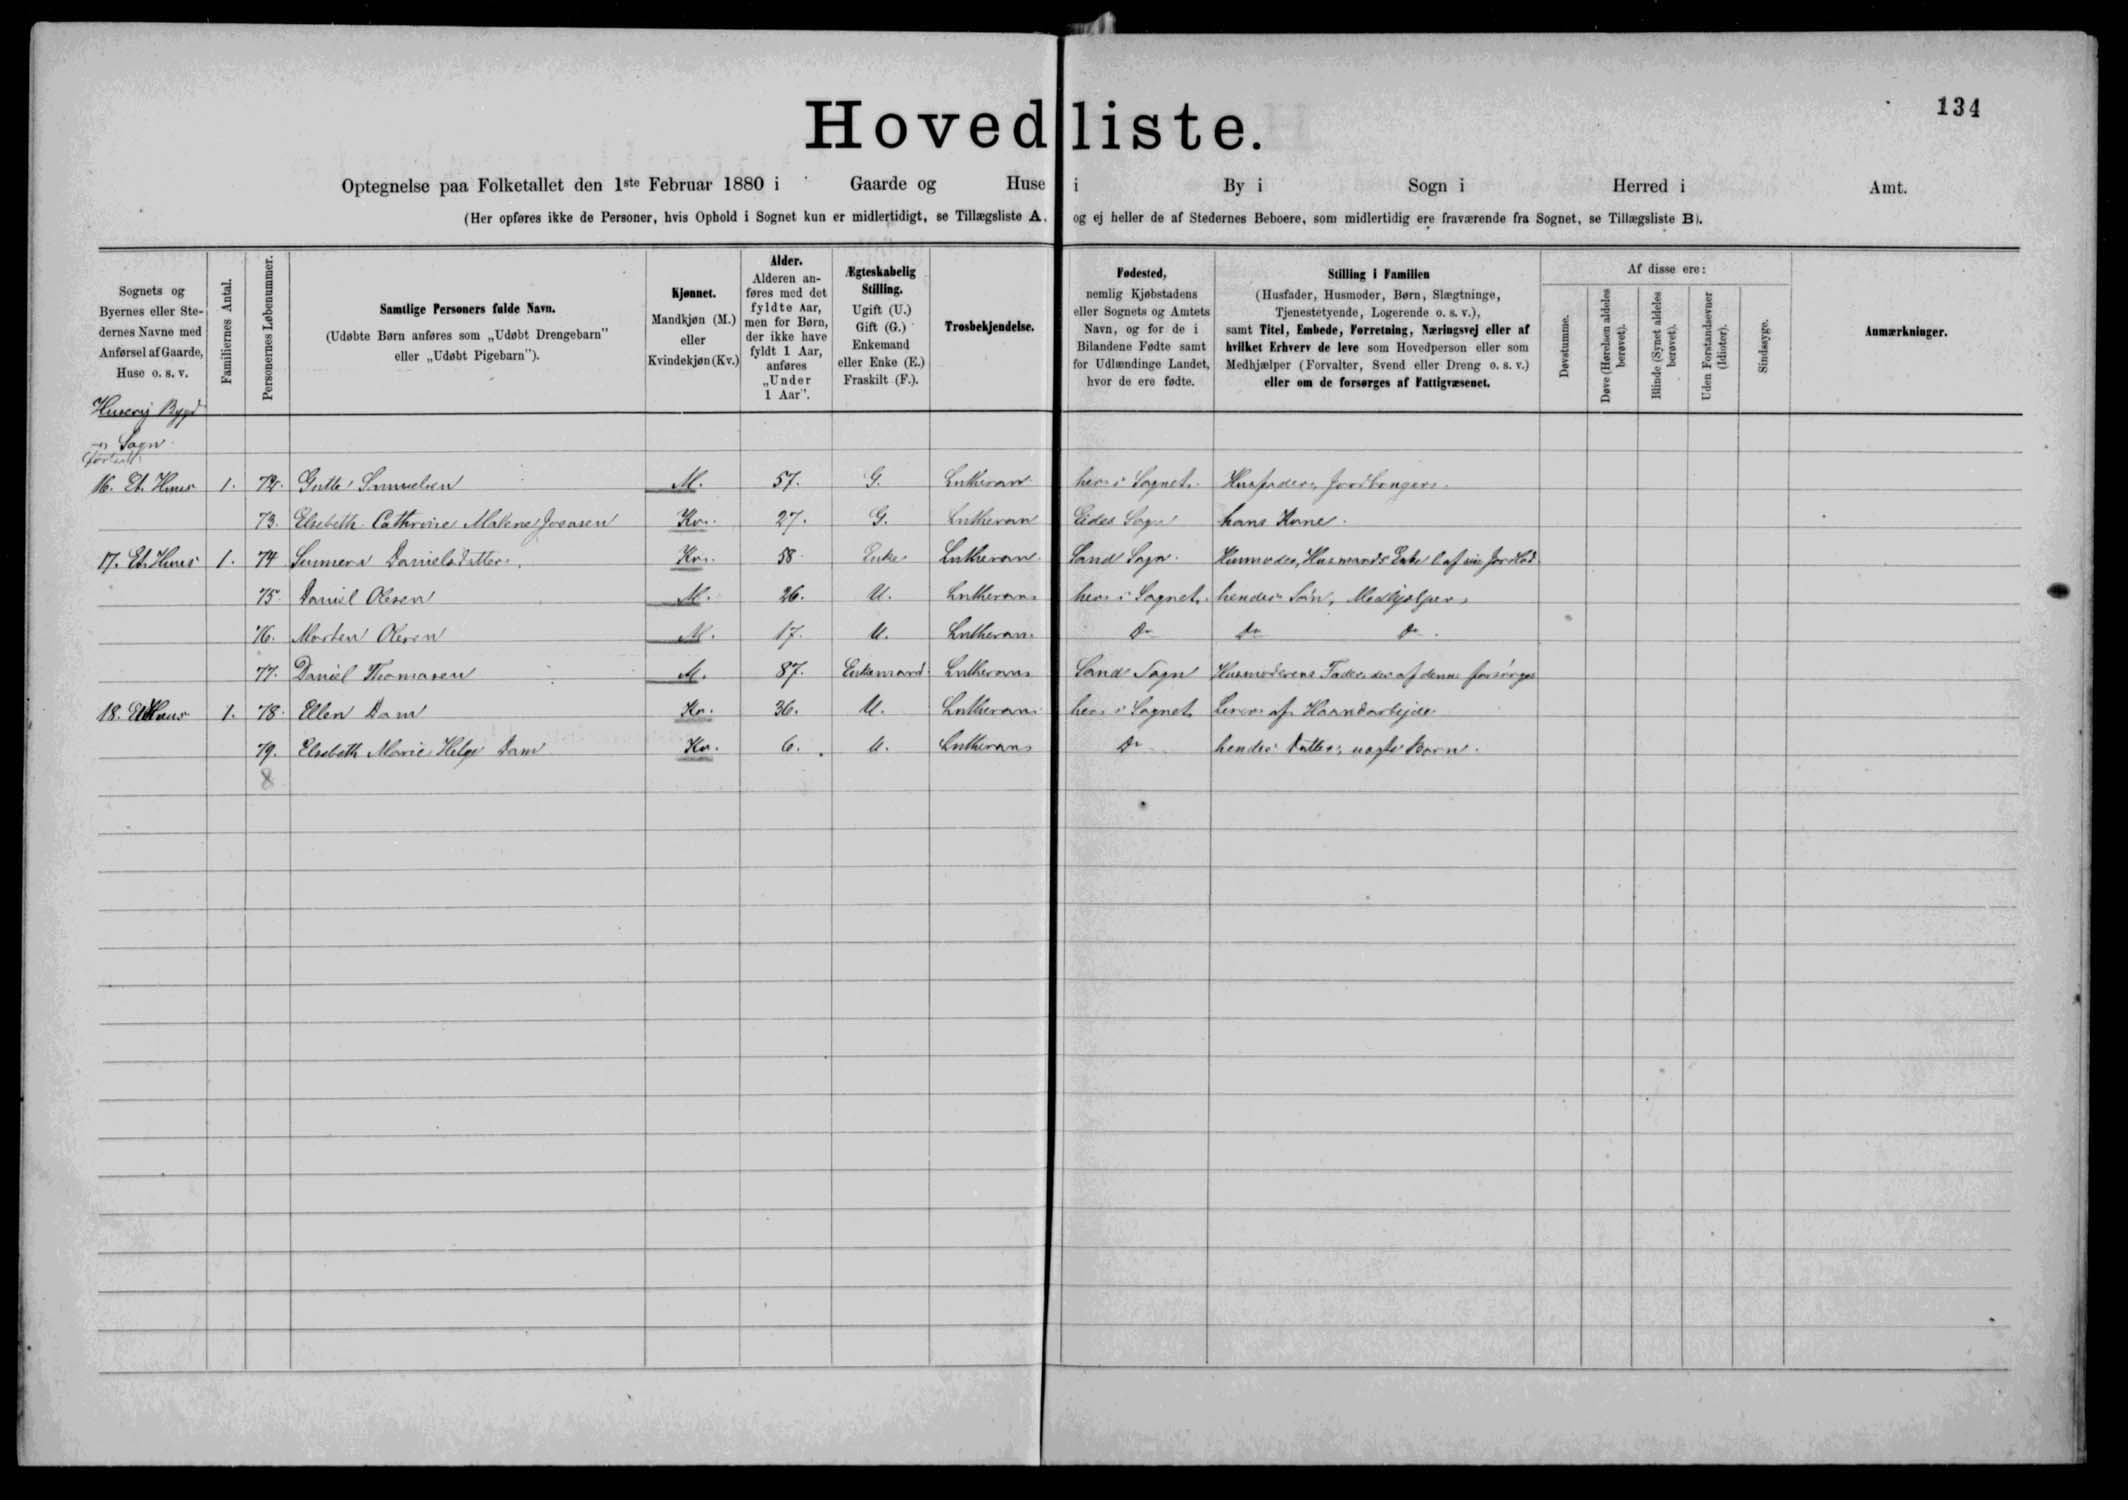 134
Hovedliste.
Optegnelse paa Folketallet den 1ste Februar 1880 i Gaarde og Huse i By i Sogn i Herred i Amt.
(Her opføres ikke de Personer, hvis Ophold i Sognet kun er midlertidigt, se Tillægsliste A. og ej heller de af Stedernes Beboere, som midlertidig ere fraværende fra Sognet, se Tillægsliste B).
Sognets og
Byernes eller Ste-
dernes Navne med
Anførsel af Gaarde,
Huse o. s. v.
Familiernes Antal.
Personernes Løbenummer.
Samtlige Personers fulde Navn.
(Udøbte Børn anføres som „Udøbt Drengebarn"
eller „Udøbt Pigebarn").
Kjønnet.
Mandkjøn (M.)
eller
Kvindekjøn (Kv.)
Alder.
Alderen an-
føres med det
fyldte Aar,
men for Børn,
der ikke have
fyldt 1 Aar,
anføres
„Under
1 Aar".
Ægteskabelig
Stilling.
Ugift (U.)
Gift (G.)
Enkemand
eller Enke (E.)
Fraskilt (F.).
Trosbekjendelse.
Fødested,
nemlig Kjøbstadens
eller Sognets og Amtets
Navn, og for de i
Bilandene Fødte samt
for Udlændinge Landet,
hvor de ere fødte.
Stilling i Familien
(Husfader, Husmoder, Børn, Slægtninge,
Tjenestetyende, Logerende o. s. v.),
samt Titel, Embede, Forretning, Næringsvej eller af
hvilket Erhverv de leve som Hovedperson eller som
Medhjælper (Forvalter, Svend eller Dreng o. s. v.)
eller om de forsørges af Fattigvæsenet.
Af disse ere:
Døvstumme.
Døve (Hørelsen aldeles
berøvet).
Blinde (Synet aldeles
berøvet).
Uden Forstandsevner
(Idioter).
Sindssyge.
Anmærkninger.
Husevig Bygd
og Sogn
16. Et Huus 1. 72. Gutte Samuelsen M. 57. G. Lutheran her i Sognet. Husfader, Jordbruger.
73. Elsebeth Cathrine Malene Joensen Kv. 27. G. Lutheran Eides Sogn hans Kone.
17. Et Huus 1. 74 Sunneva Danielsdatter. Kv. 58 Enke Lutheran Sand Sogn. Husmoder, Husmands Enke l. af sin Jordlod
75. Daniel Olesen M. 26. U. Lutheran her i Sognet. hendes Søn, Medhjælper
76. Morten Olesen M. 17. U. Lutheran Do Do Do
77. Daniel Thomasen M. 87. Enkemand Lutheran Sand Sogn Husmoderens Fader, der af denne forsørges
18. Et Huus 1. 78. Ellen Dam Kv. 36. U. Lutheran her i Sognet Lever af Haandarbejde
79. Elsebeth Marie Helge Dam Kv. 6. U. Lutheran Do hendes Datter, uægte Barn.
8